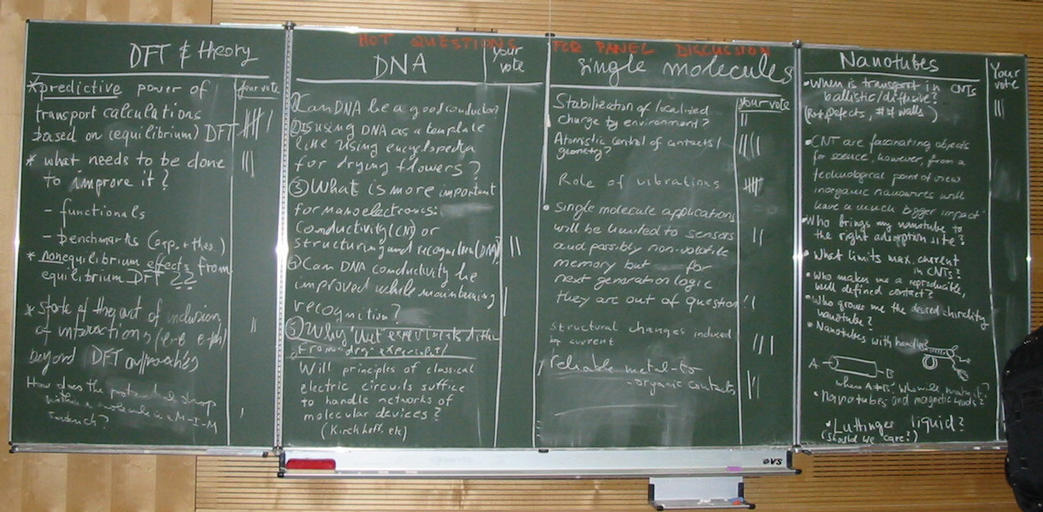 HOT QUESTIONS FOR PANEL DISCUSSION
DFT & theory
your vote
* predictive power of
transport calculations
based on (equilibrium) DFT
* what needs to be done
to improve it?
- functionals
- benchmarks (exp. + theo)
* nonequilibrium effects from
equilibrium DFT ??
* state of the art of inclusion
of interactions (e-e e-ph)
beyond DFT approaches
How does the potential drop
within a molecule in a M-I-M
DNA
your
vote
① Can DNA be a good conductor
② Is using DNA as a template
like using encyclopedia
for drying flowers?
③ What is more important
for nanoelectronics:
Conductivity (CNT) or
structuring and recognition (DNA)
④ Can DNA conductivity be
improved while maintaining
recognition?
⑤ Why "wet" experiments differ
from "dry" experiments?
Will principles of classical
electric circuits suffice
to handle networks of
molecular devices?
(Kirchhoff, etc)
Single molecules
your vote
Stabilization of localized
charge by environment?
Atomistic control of contacts/
geometry?
Role of vibrations
• Single molecule applications
will be limited to sensors
and possibly non-volatile
memory but for
next generation logic
they are out of question!
structural changes induced
by current
reliable metal-to
-organic contacts
Nanotubes
Your
vote
• When is transport in CNTs
ballistic/diffusive?
defects, # of walls)
• CNT are fascinating objects
for science, however, from a
technological point of view
inorganic nanowires will
have a much bigger impact
• Who brings my nanotube to
the right adsorption site?
• What limits max. current
in CNTs?
• Who makes me a reproducible,
well defined contact?
• Who grows me the desired chirality
nanotube?
• Nanotubes with handles
A B
where A≠B: who will make it?
• Nanotubes and magnetic fields?
• Luttinger liquid?
(should we care?)